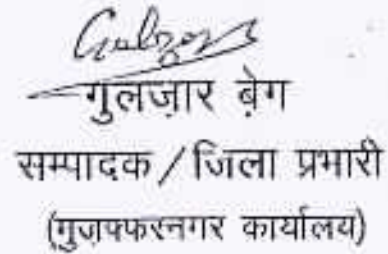 गुलज़ार बे़ग
सम्पादक / जिला प्रभारी
(मुज़फ्फरनगर कार्यालय)